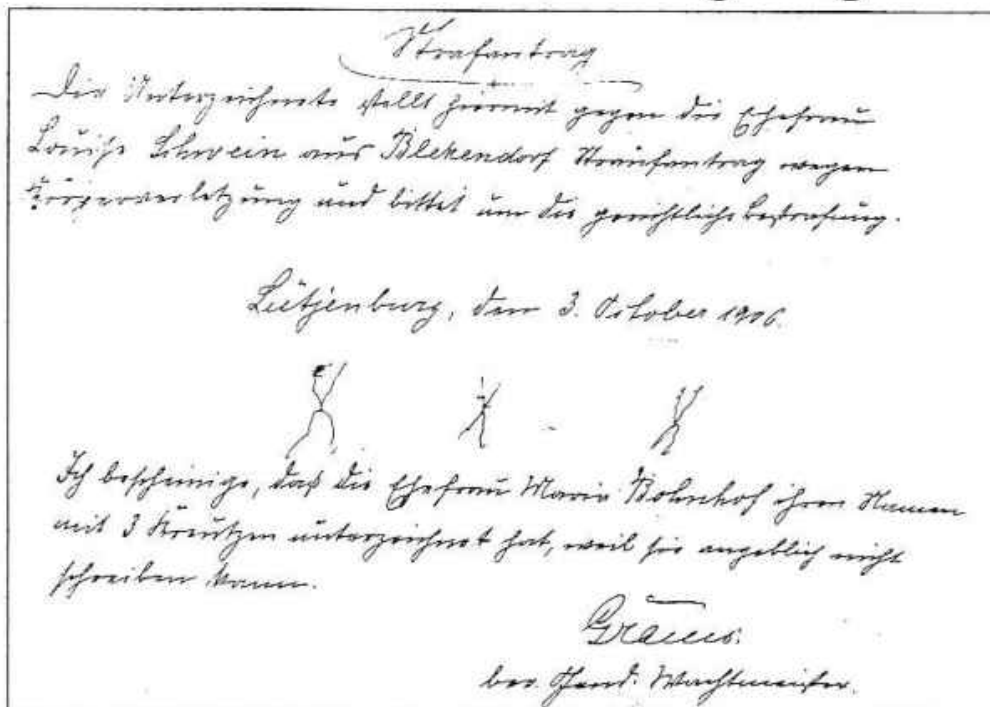 Strafantrag
Die Unterzeichnete stellt hiermit gegen die Ehefrau
Louise Schwein aus Blekendorf Straufantrag wegen
Körperverletzung und bittet um die gerichtliche Bestrafung.
Lütjenburg, den 3. October 1906.
Ich bescheinige, daß die Ehefrau Marie Bohnhof ihren Namen
mit 3 Kreutzen unterzeichnet hat, weil sie angeblich nicht
schreiben kann.
ber. Gend. Wachtmeister.